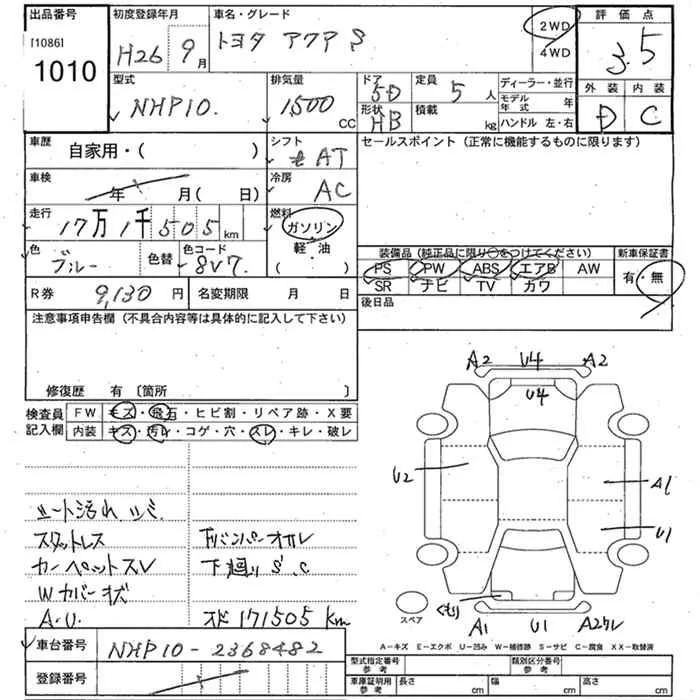 出品番号
[1086]
1010
初度登録年月
H26 9月
車名・グレード
トヨタ アクア S
2WD
4WD
評価点
3.5
外装 内装
D C
型式
NHP10
排気量
1,500 cc
ドア
5D
形状
HB
定員
5人
積載
kg
ディーラー・並行
モデル年式 年
ハンドル 左・右
車歴
自家用・( )
シフト
AT
セールスポイント (正常に機能するものに限ります)
車検
年 月(日)
冷房
AC
走行
17万1千505km
燃料
ガソリン
軽・油
( ・ )
色
ブルー
色替
色コード
8V7
装備品 (純正品に限り○をつけてください)
PS PW ABS エアB AW
SR ナビ TV カワ
新車保証書
有・無
R券 9,130円
名変期限 月 日
後日品
注意事項申告欄 (不具合内容等は具体的に記入して下さい)
修復歴 有 〔箇所 〕
検査員記入欄
FW キズ・飛石・ヒビ割・リペア跡・X要
内装 キズ・汚レ・コゲ・穴・スレ・キレ・破レ
シート汚れ シミ
スタットレス
カーペットスレ
Wカバーキズ
A.U.
Fバンパーオカレ
下廻り S C
メド 171505 km
A2 U4 A2
U4
U2
A1
U1
くもり
A1 U1 A2ワレ
スペア
A-キズ E-エクボ U-凹み W-補修跡 S-サビ C-腐食 XX-取替済
車台番号
NHP10-2368482
登録番号
型式指定番号 参考
類別区分番号 参考
車庫証明用 参考
長さ cm
幅 cm
高さ cm